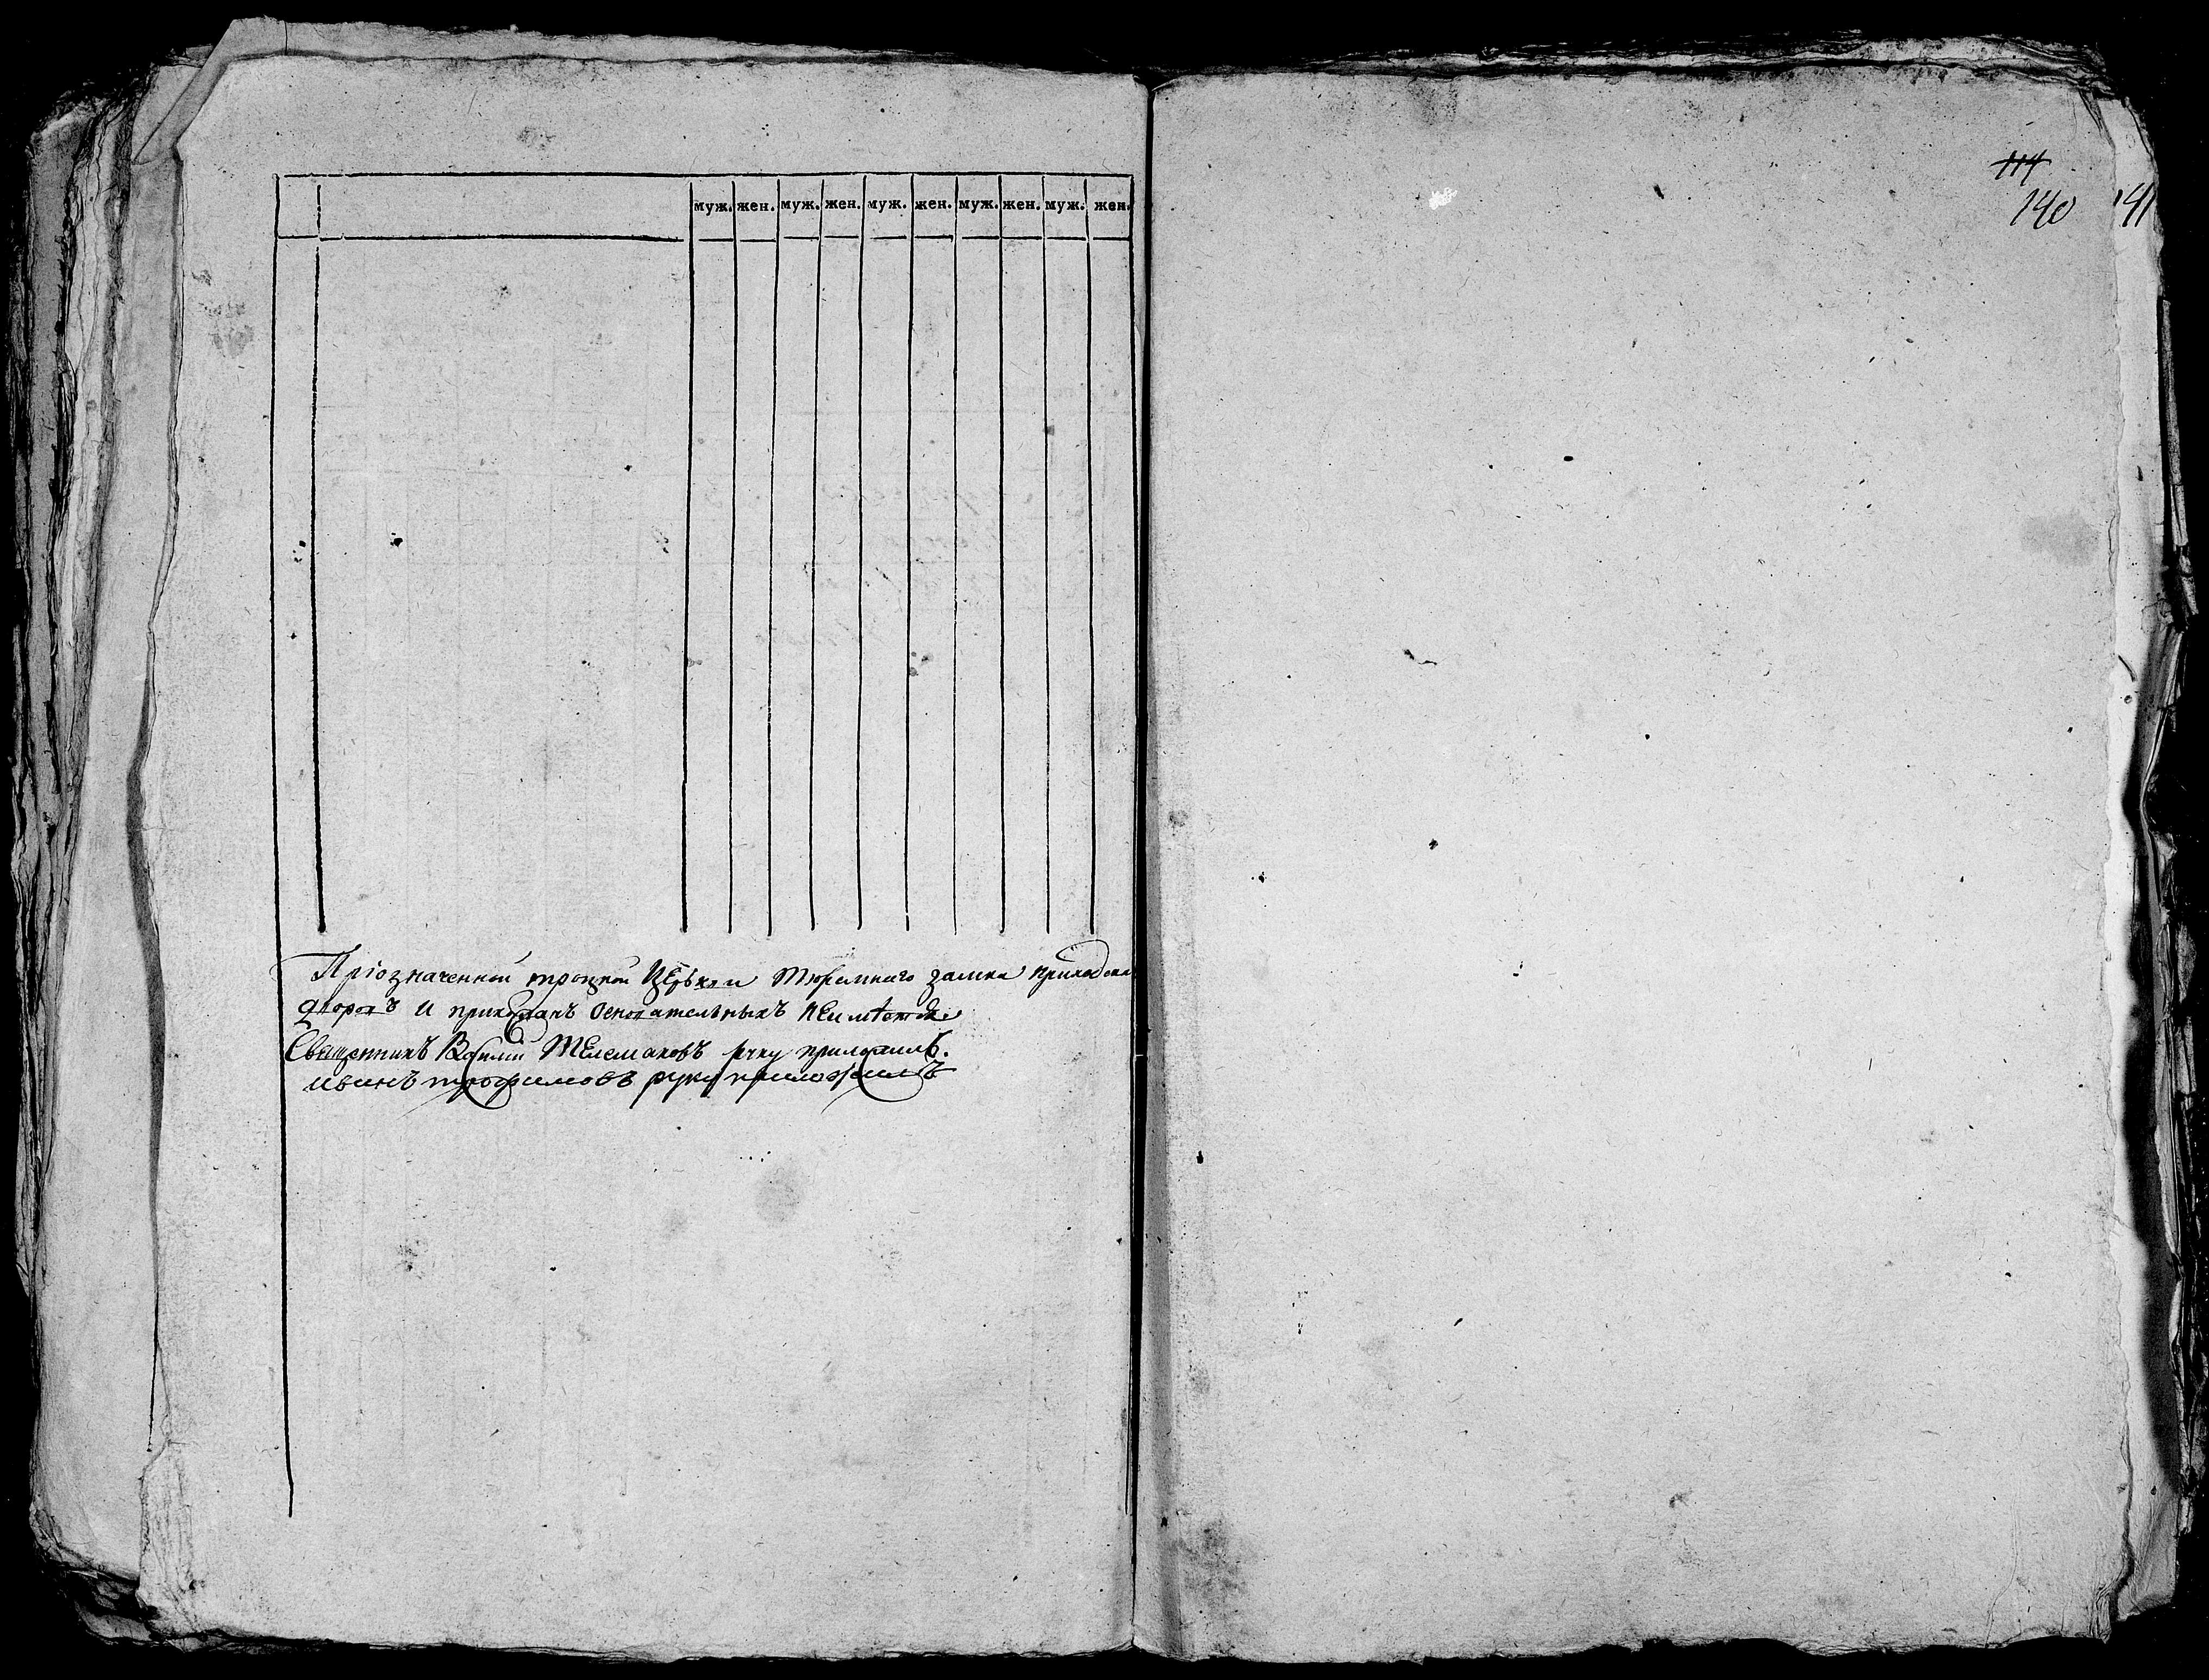 муж. жен. муж. жен. муж. жен. муж. жен. муж. жен.
Пріозначенной троцкой Церькви Тюремнаго замка приходскихъ
дворовъ и прихожанъ основательныхъ неимѣется
Священникъ Василій Телемаковъ руку приложилъ.
иванъ трофимовъ руку приложилъ
114
140
141